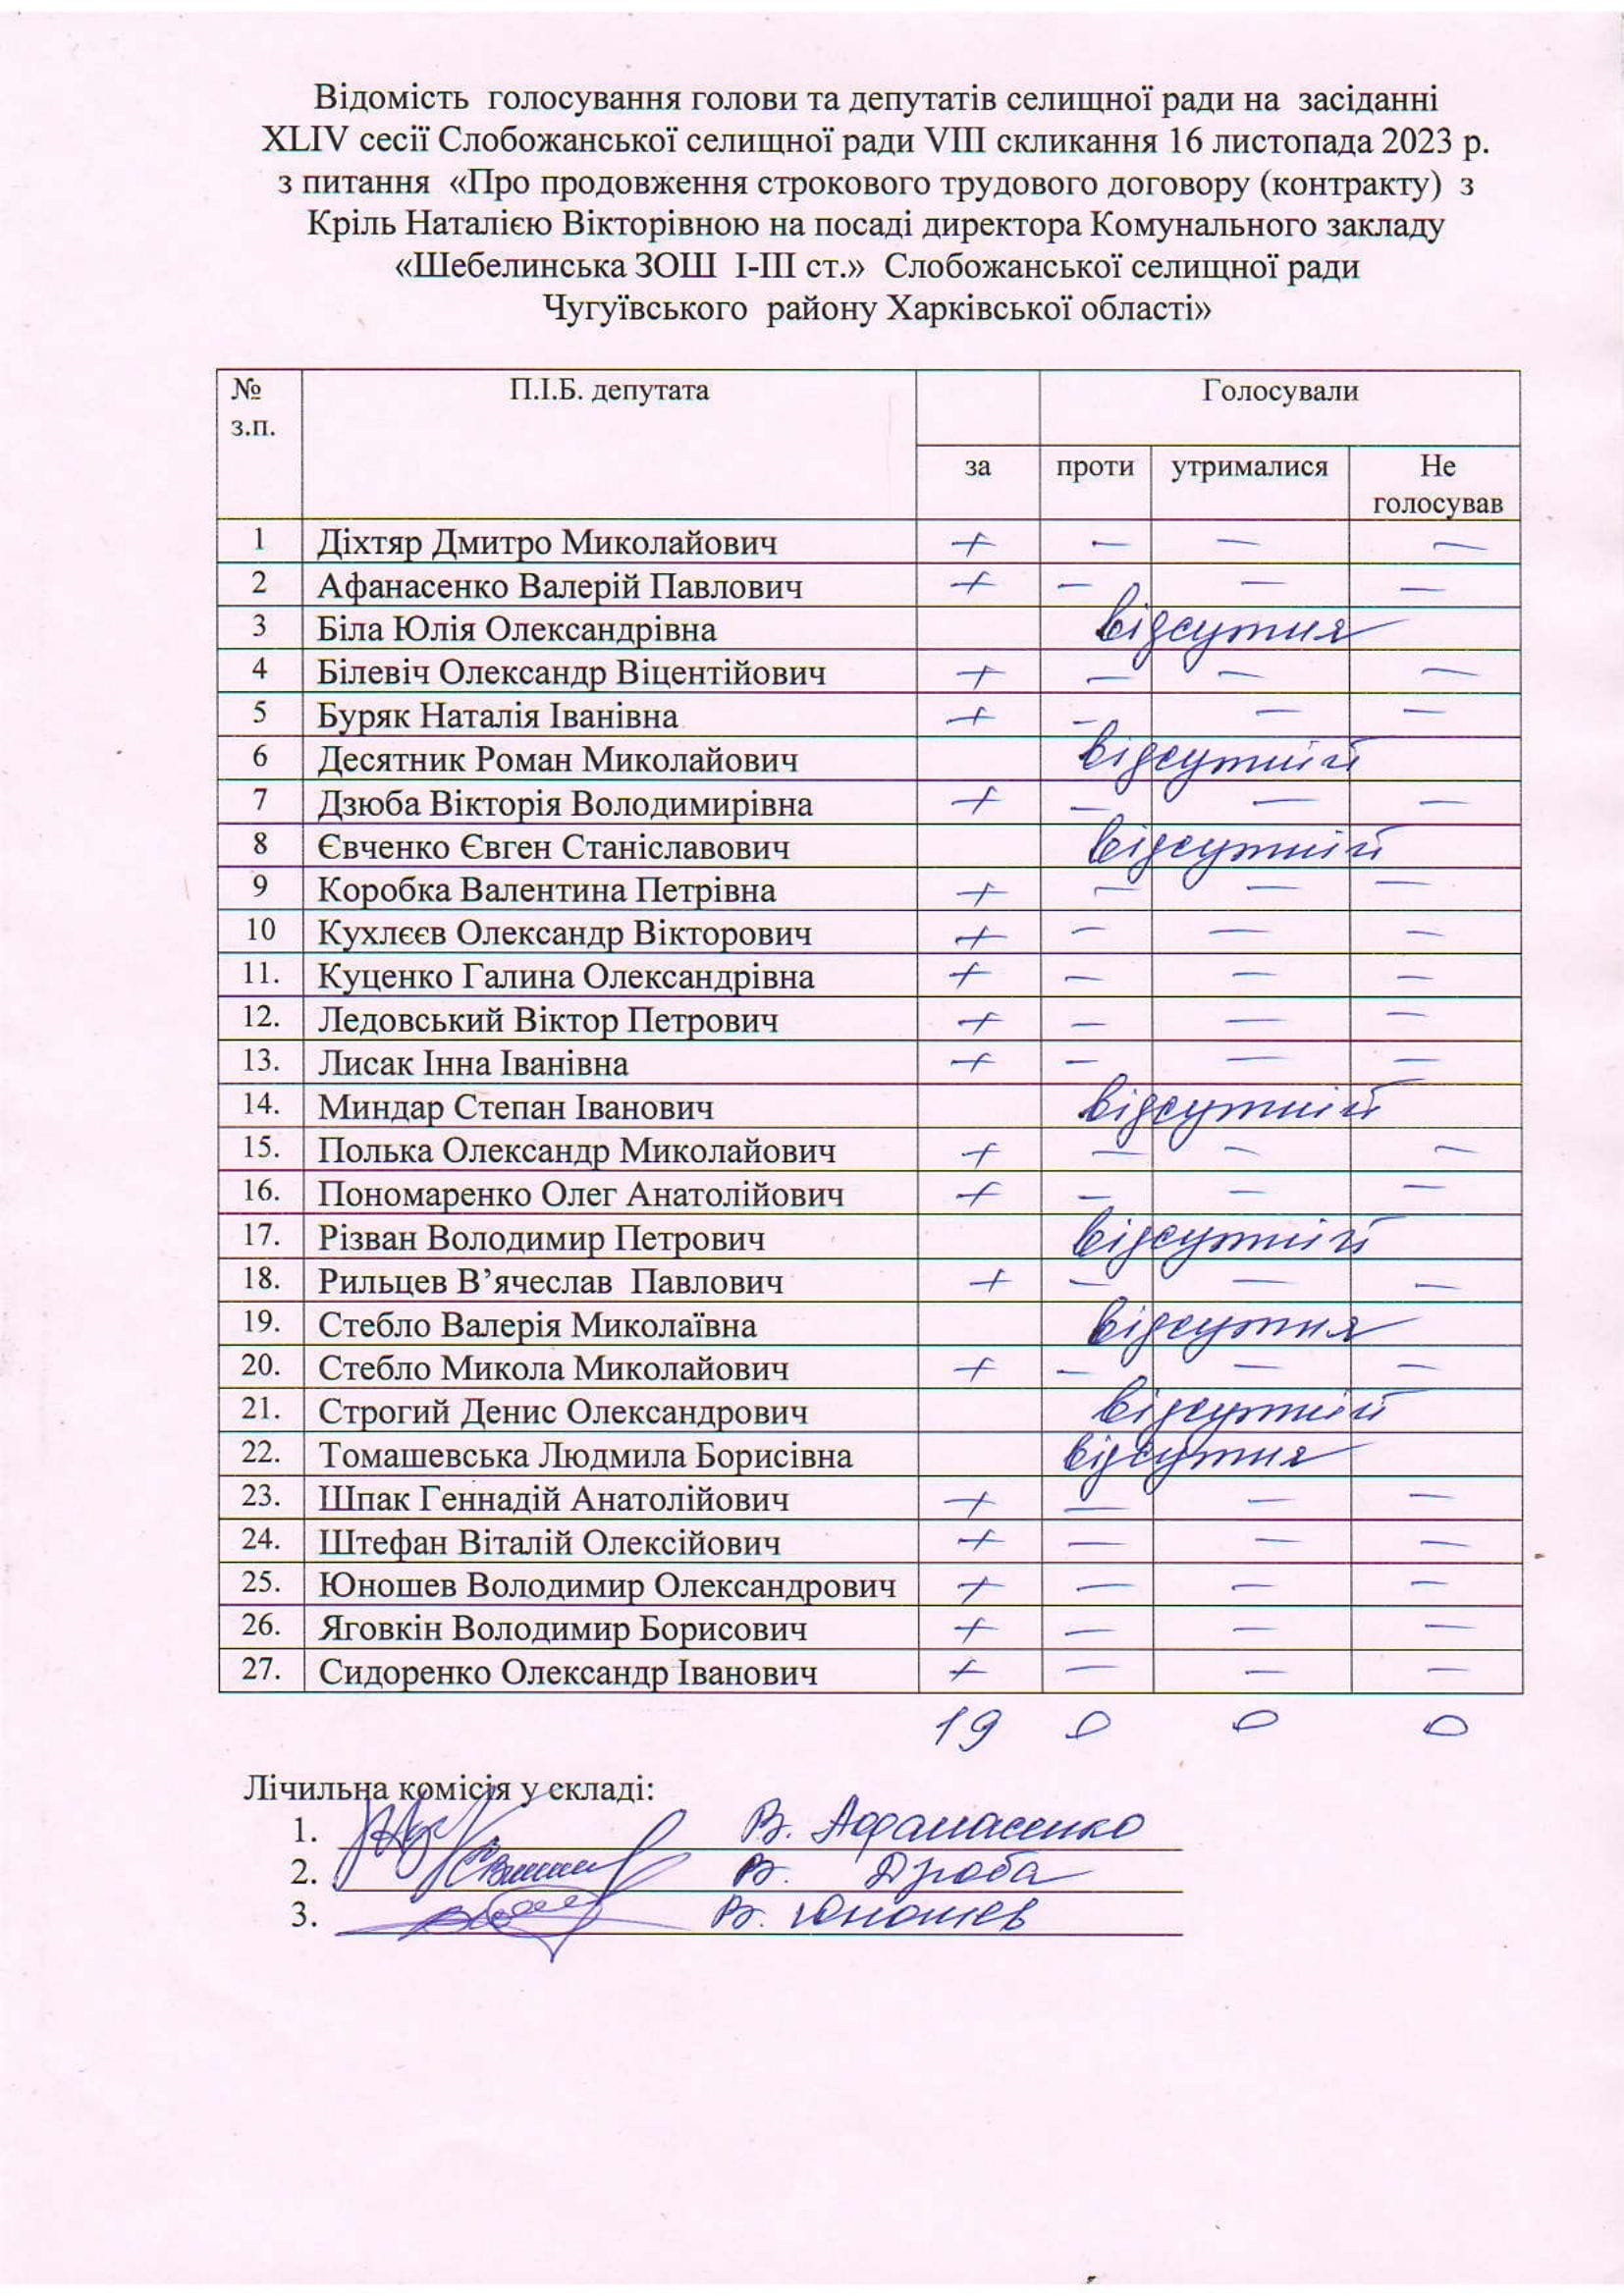 Відомість голосування голови та депутатів селищної ради на засіданні
XLIV сесії Слобожанської селищної ради VIII скликання 16 листопада 2023 р.
з питання «Про продовження строкового трудового договору (контракту) з
Кріль Наталією Вікторівною на посаді директора Комунального закладу
«Шебелинська ЗОШ І-ІІІ ст.» Слобожанської селищної ради
Чугуївського району Харківської області»
№ П.І.Б. депутата Голосували
з.п.
за проти утрималися Не
голосував
1 Діхтяр Дмитро Миколайович + – – –
2 Афанасенко Валерій Павлович + – – –
3 Біла Юлія Олександрівна відсутня
4 Білевіч Олександр Віцентійович + – – –
5 Буряк Наталія Іванівна + – – –
6 Десятник Роман Миколайович відсутній
7 Дзюба Вікторія Володимирівна + – – –
8 Євченко Євген Станіславович відсутній
9 Коробка Валентина Петрівна + – – –
10 Кухлєєв Олександр Вікторович + – – –
11. Куценко Галина Олександрівна + – – –
12. Ледовський Віктор Петрович + – – –
13. Лисак Інна Іванівна + – – –
14. Миндар Степан Іванович відсутній
15. Полька Олександр Миколайович + – – –
16. Пономаренко Олег Анатолійович + – – –
17. Різван Володимир Петрович відсутній
18. Рильцев В’ячеслав Павлович + – – –
19. Стебло Валерія Миколаївна відсутня
20. Стебло Микола Миколайович + – – –
21. Строгий Денис Олександрович відсутній
22. Томашевська Людмила Борисівна відсутня
23. Шпак Геннадій Анатолійович + – – –
24. Штефан Віталій Олексійович + – – –
25. Юношев Володимир Олександрович + – – –
26. Яговкін Володимир Борисович + – – –
27. Сидоренко Олександр Іванович + – – –
19 0 0 0
Лічильна комісія у складі:
1. В. Афанасенко
2. В. Дзюба
3. В. Юношев